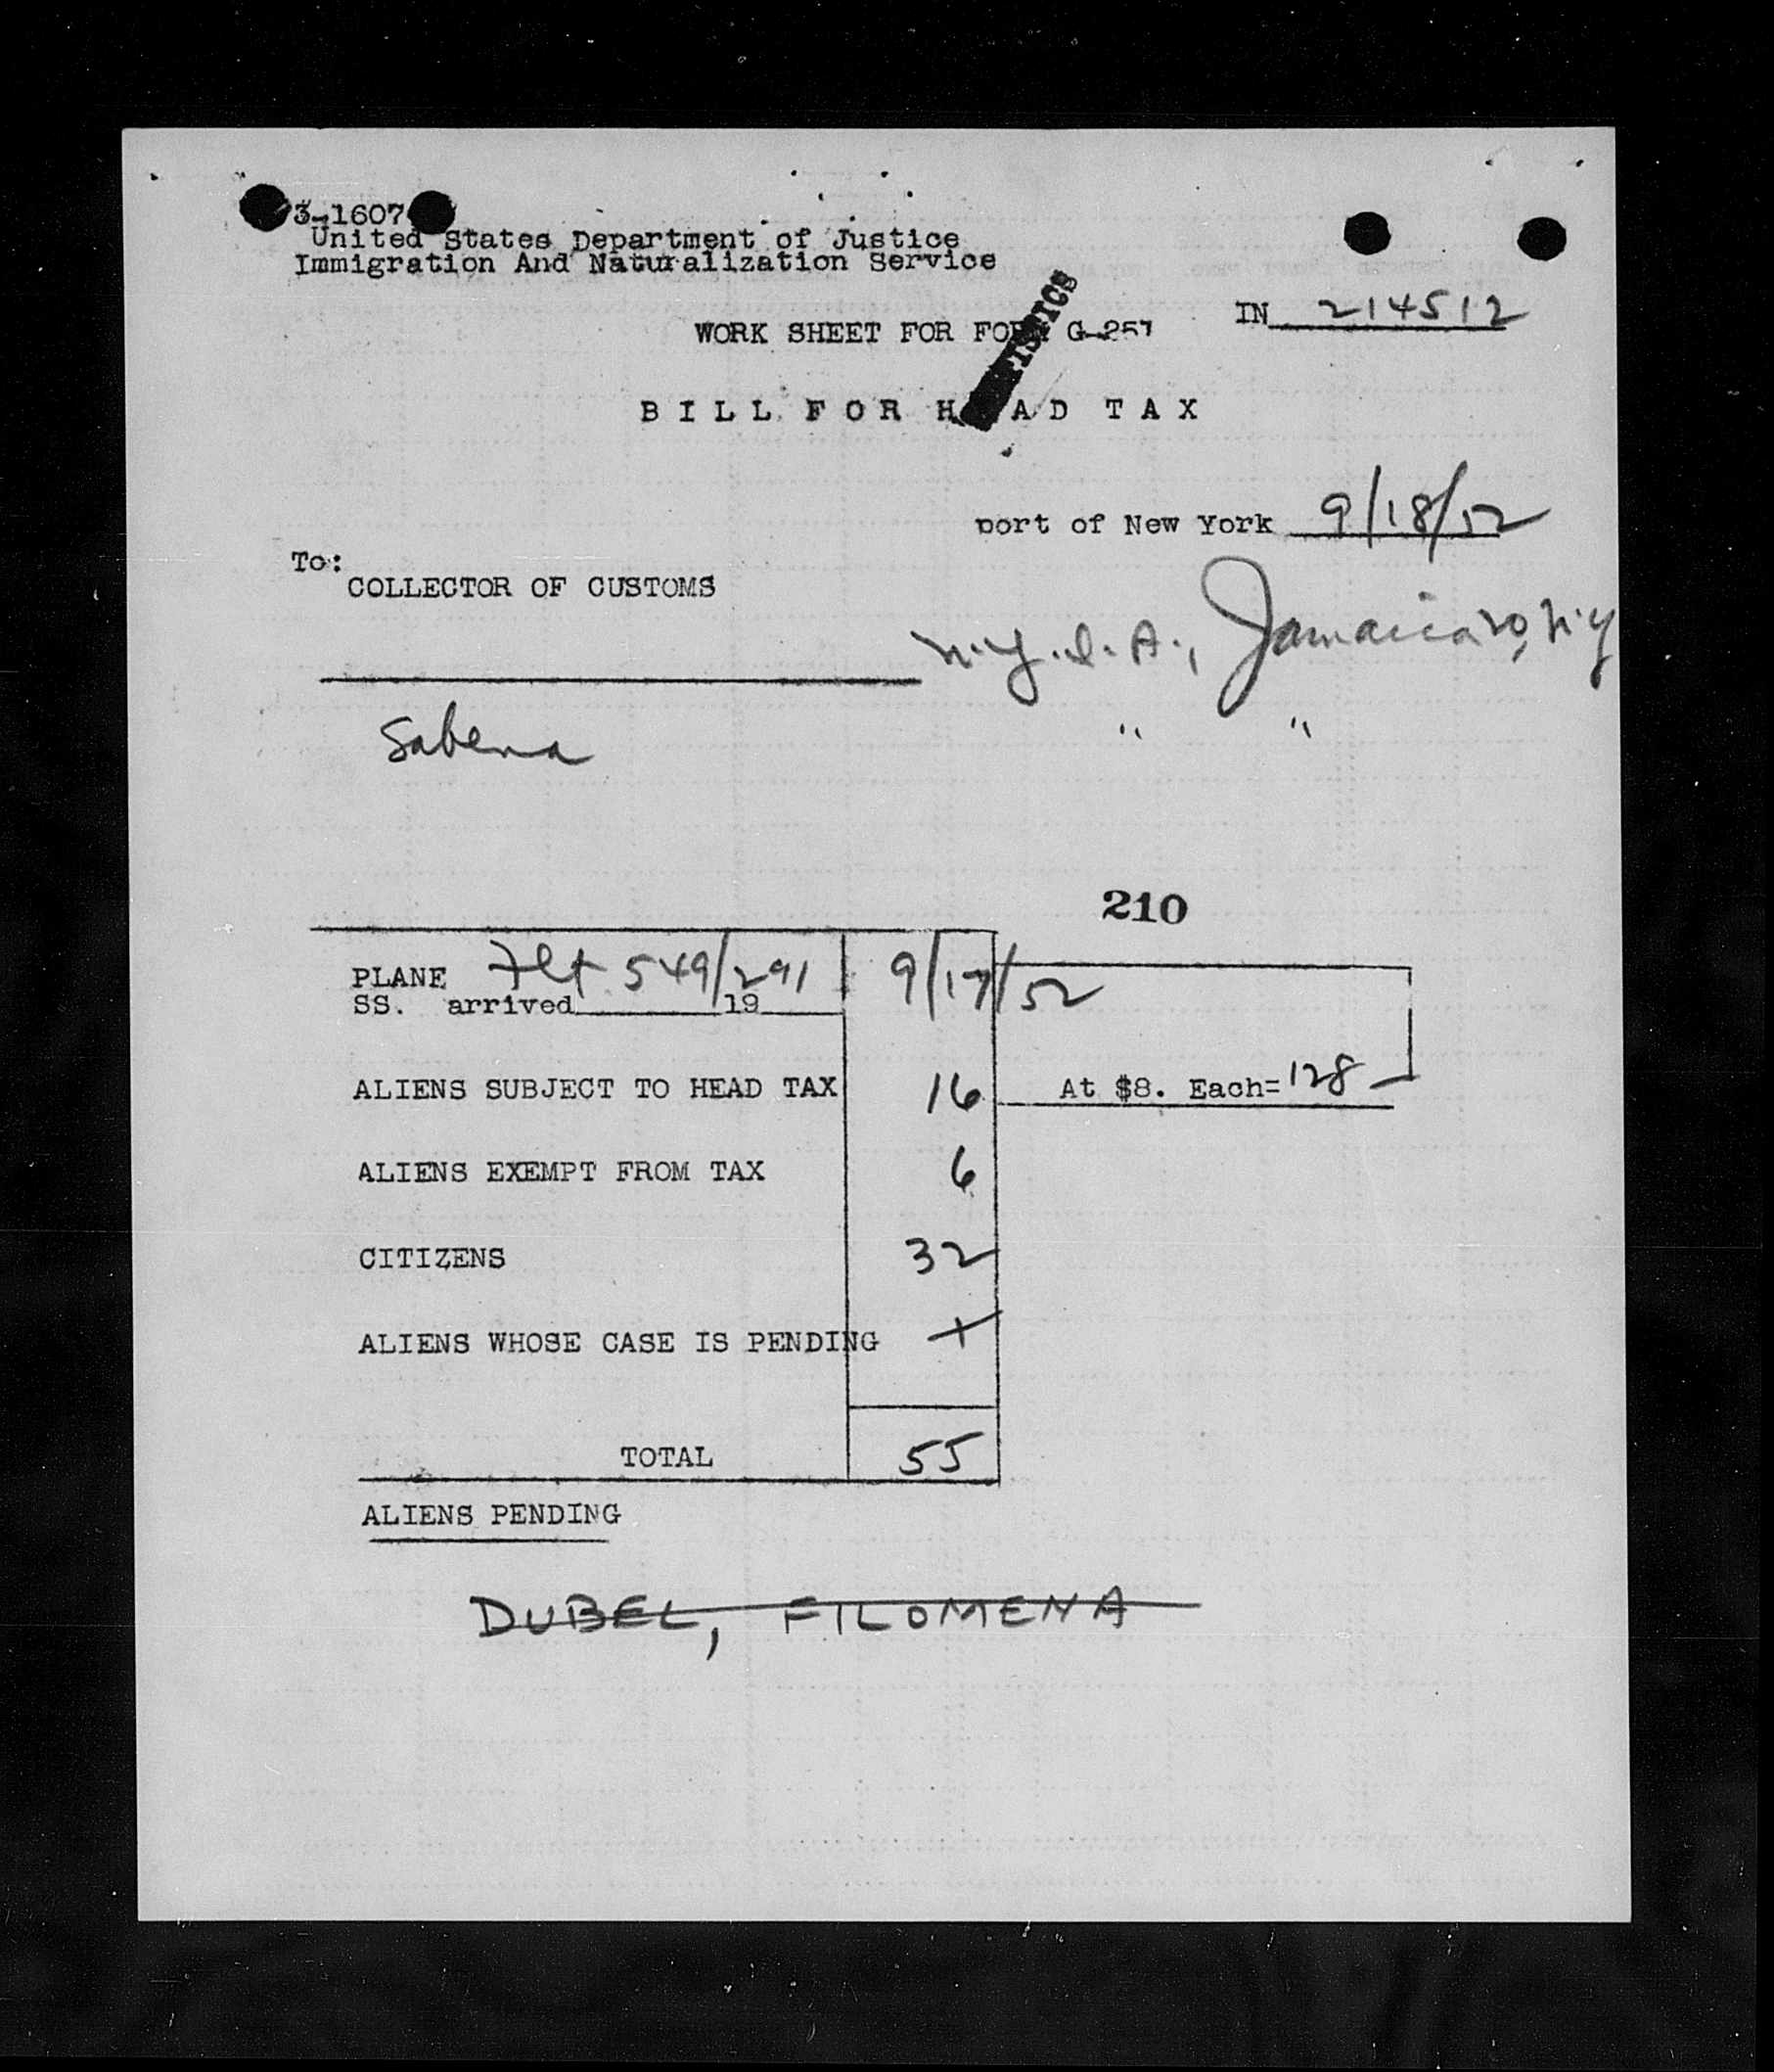 3-1607
United States Department of Justice
Immigration And Naturalization Service
IN 214512
WORK SHEET FOR FORM G-257
BILL FOR HEAD TAX
port of New York 9/18/52
To:
COLLECTOR OF CUSTOMS
N.Y.I.A., Jamaica 20, N.Y
" "
Sabena
210
PLANE Flt 549/291 9/17/52
SS. arrived 19
ALIENS SUBJECT TO HEAD TAX 16 At $8. Each= 128
ALIENS EXEMPT FROM TAX 6
CITIZENS 32
ALIENS WHOSE CASE IS PENDING
TOTAL 55
ALIENS PENDING
DUBEL, FILOMENA